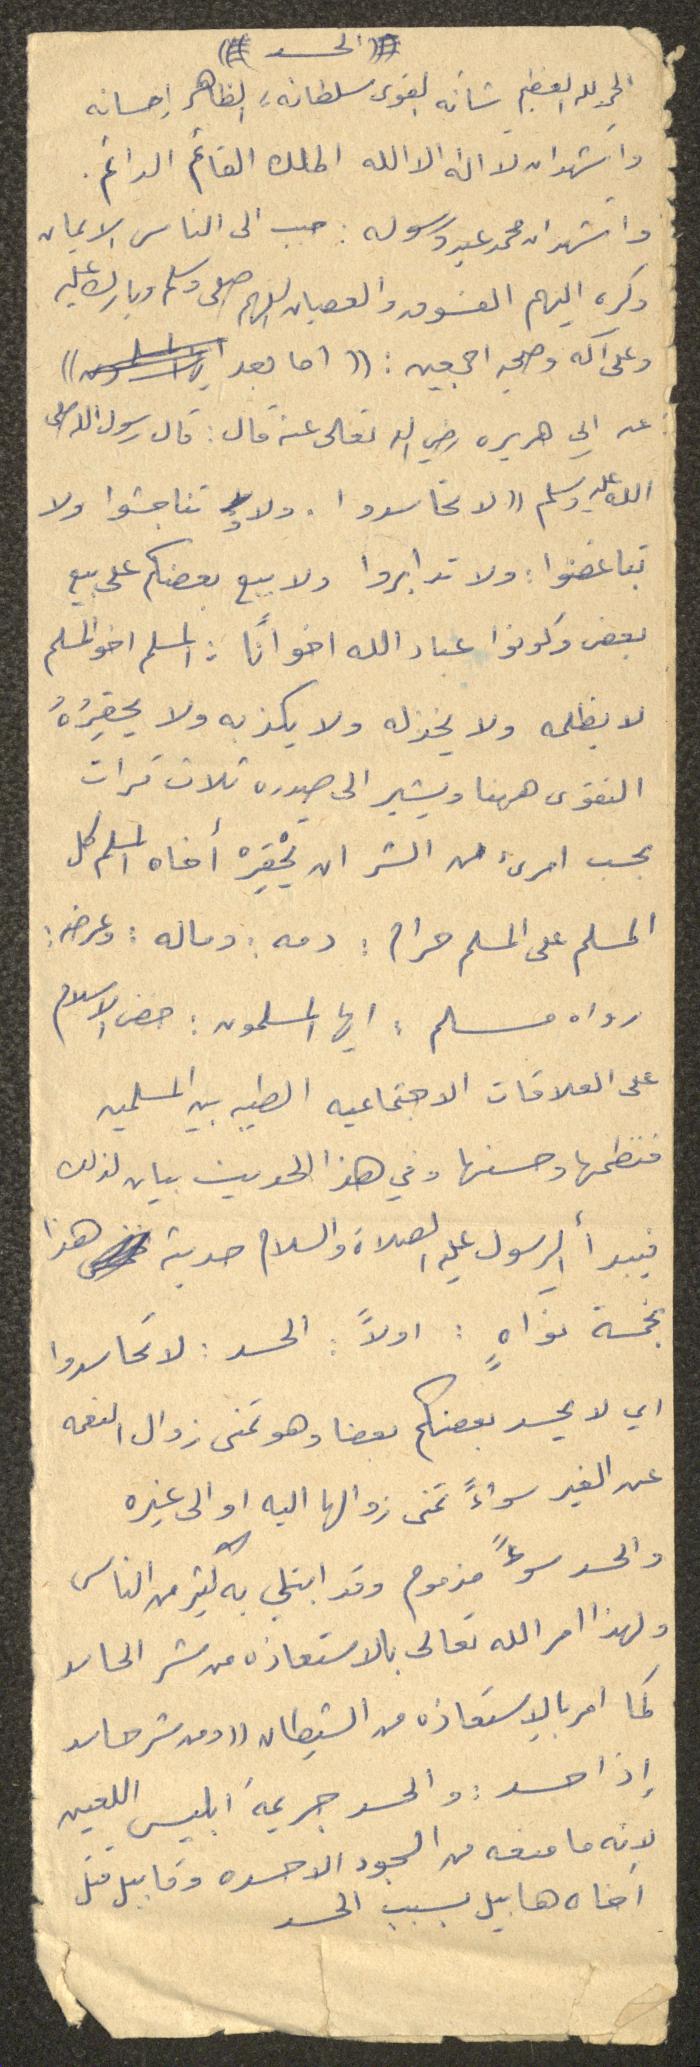 ((الحسد))
الحمد لله العظيم شأنه القوى سلطانه، الظاهر إحسانه
وأشهد ان لا اله الا الله الملك القائم الدائم.
وأشهد ان محمد عبده ورسوله : حبب الى الناس الايمان
وكره اليهم الفسوق والعصيان اللهم صلى وسلم وبارك عليه
وعلى آله وصحبه اجمعين : (( اما بعد ايها المسلمون ))
عن ابي هريره رضي الله تعالى عنه قال : قال رسول الله صلى
الله عليه وسلم (( لا تحاسدوا . ولا تناجشوا ولا
تباغضوا : ولا تدابروا ولا يبيع بعضكم على بيع
بعض وكونوا عباد الله اخوانًا : المسلم اخو المسلم
لا يظلمه ولا يخذله ولا يكذبه ولا يحقِرُهُ
التقوى ههنا ويشير الى صدره ثلاث مرات
بحسب امرىء من الشر ان يَحْقِرهْ أخاه المسلم كل
المسلم على المسلم حرام : دمه : وماله : وعرضه :
رواه مسلم : ايها المسلمون : حض الاسلام
على العلاقات الاجتماعيه الطيبه بين المسلمين
فنظمها وحسنها وفي هذا الحديث بيان لذلك
فيبدأ الرسول عليه الصلاة والسلام حديثه هذا
بخمسة نواهٍ : اولاً : الحسد : لا تحاسدوا
اي لا يحسد بعضكم بعضا وهو تمنى زوال النعمه
عن الغير سواءً تمنى زوالها اليه او الى غيره
والحسد سوءً مذموم وقد ابتلي به كثير من الناس
ولهذا امر الله تعالى بالاستعاذه من شر الحاسد
كما امر بالاستعاذه من الشيطان (( ومن شر حاسد
إذا حسد : والحسد جريمة ابليس اللعين
لانه ما منعه من السجود الا حسده وقابيل قتل
أخاه هابيل بسبب الحسد